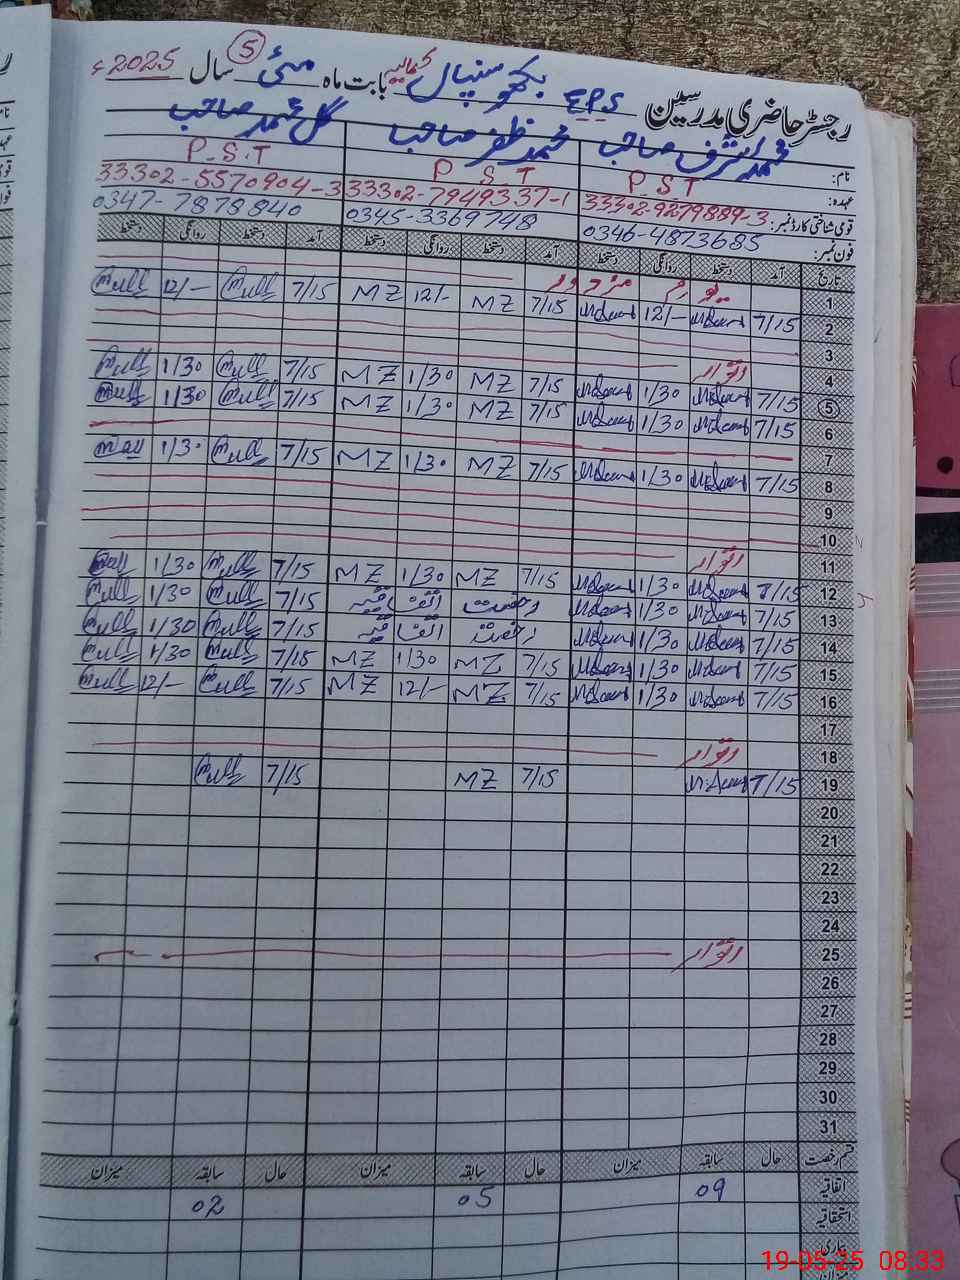 رجسٹر حاضری مدرسین G.P.S بکھو سنپال کمالیہ بابت ماہ مئی 5 سال 2025ء
نام: محمد اشرف صاحب محمد ظفر صاحب گل محمد صاحب
عہدہ: P.S.T P S T P.S.T
قومی شناختی کارڈ نمبر: 33302-9279889-3 33302-7949337-1 33302-5570904-3
فون نمبر: 0346-4873685 0345-3369748 0347-7878840
تاریخ آمد دستخط روانگی دستخط آمد دستخط روانگی دستخط آمد دستخط روانگی دستخط
1 یوم مزدور
2 7/15 12/- 7/15 MZ 12/- MZ 7/15 12/-
3
4 اتوار
5 7/15 1/30 7/15 MZ 1/30 MZ 7/15 1/30
6 7/15 1/30 7/15 MZ 1/30 MZ 7/15 1/30
7
8 7/15 1/30 7/15 MZ 1/30 MZ 7/15 1/30
9
10
11 اتوار
12 7/15 1/30 7/15 MZ 1/30 MZ 7/15 1/30
13 7/15 1/30 رخصت اتفاقیہ 7/15 1/30
14 7/15 1/30 رخصت اتفاقیہ 7/15 1/30
15 7/15 1/30 7/15 MZ 1/30 MZ 7/15 1/30
16 7/15 1/30 7/15 MZ 12/- MZ 7/15 12/-
17
18 اتوار
19 7/15 7/15 MZ 7/15
20
21
22
23
24
25 اتوار
26
27
28
29
30
31
قسم رخصت حال سابقہ میزان حال سابقہ میزان حال سابقہ میزان
اتفاقیہ 09 05 02
استحقاقیہ
بیماری
میزان
19-05-25 08:33